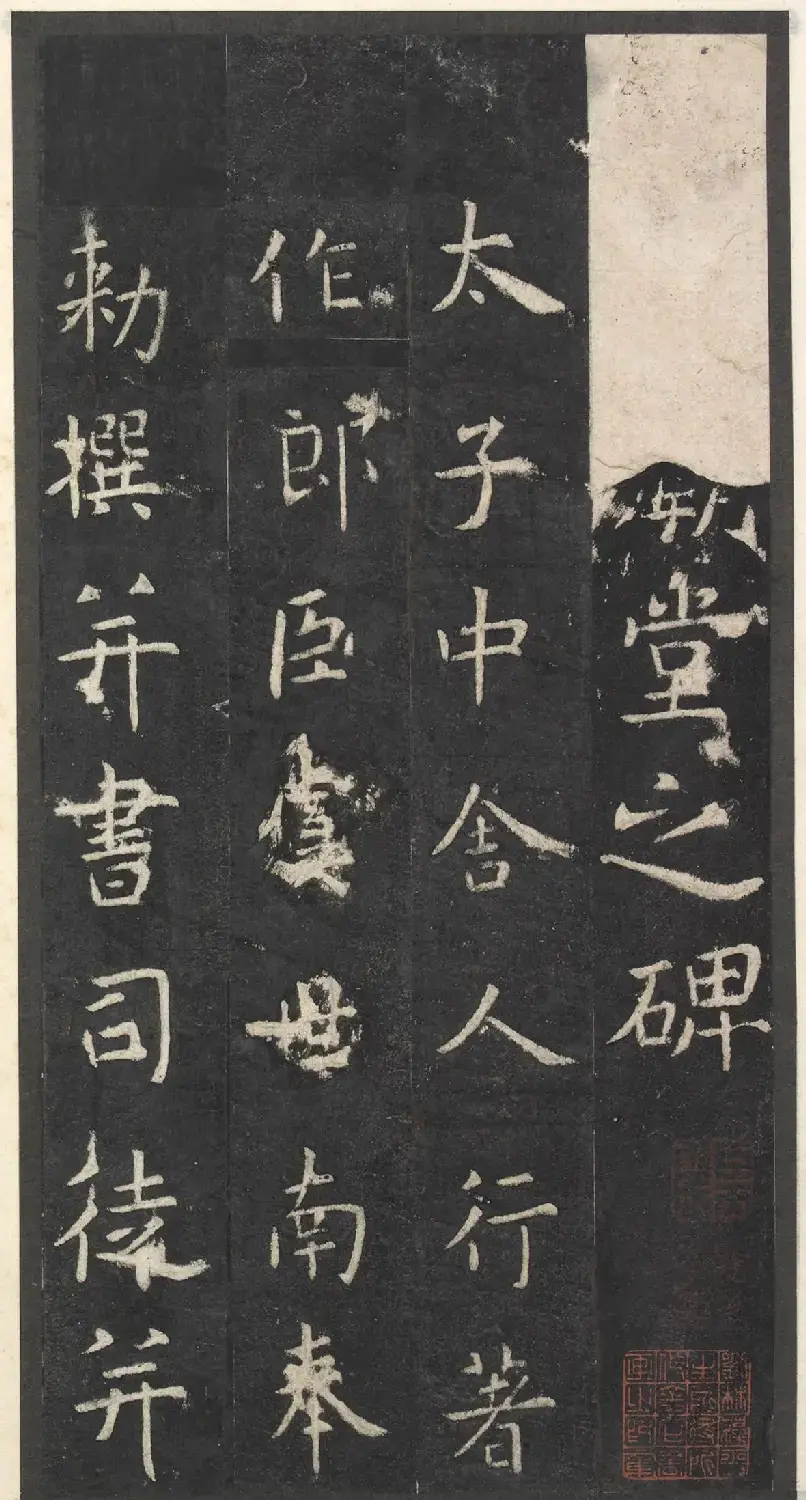 堂之碑
太子中舍人行著
作郎臣虞世南奉
勅撰并書司徒并